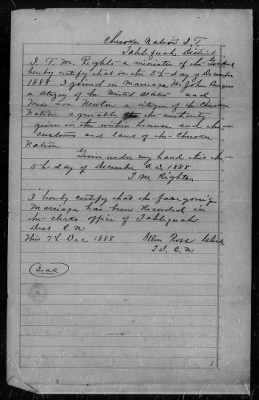 Cherokee Nation I. T.
Tahlequah District
I, T. M. Rights a minister of the Gospel
hereby certify that on the 5th day of December
1888 I joined in Marriage Mr John
a citizen of the United States and
Miss Newton a citizen of the Cherokee
Nation agreeable to the authority
given in the within license and the
customs and laws of the Cherokee
Nation
Given under my hand this the
5th day of December A.D. 1888
T. M. Rights
I hereby certify that the foregoing
Marriage has been recorded in
the clerks office of Tahlequah
Dist C. N.
This 7th Dec 1888 Allen Ross Clerk
T. D. C. N.
Seal